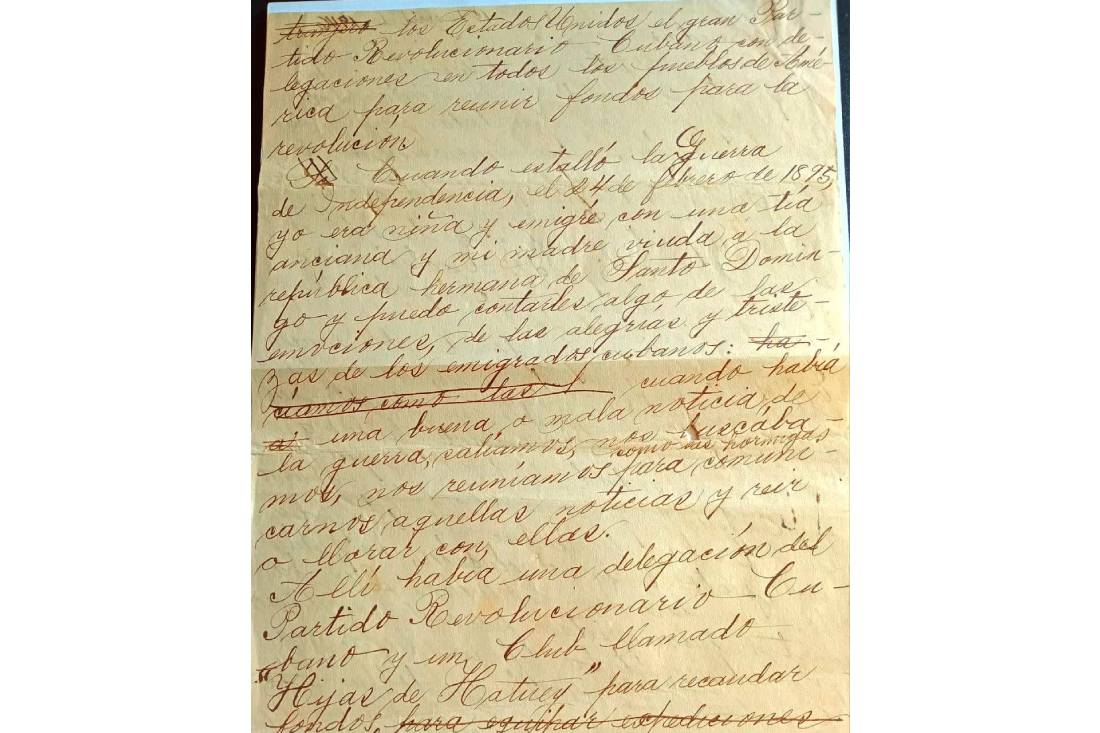 los Estados Unidos el gran Par-
tido Revolucionario Cubano, con de-
legaciones en todos los pueblos de Amé-
rica para reunir fondos para la
revolución
Yo Cuando estalló la Guerra
de Independencia, el 24 de febrero de 1895,
yo era niña y emigré con una tía
anciana y mi madre viuda, a la
república hermana de Santo Domin-
go y puedo contarles algo de las
emociones, de las alegrías y triste-
zas de los emigrados cubanos: ha-
ciamos como las cuando había
una buena o mala noticia de
la guerra, salíamos, nos buscába-
como las hormigas
mos, nos reuníamos para comuni-
carnos aquellas noticias y reir
o llorar con ellas.
Allí había una delegación del
Partido Revolucionario Cu-
bano y un Club llamado
"Hijas de Hatuey" para recaudar
fondos, para equipar expediciones